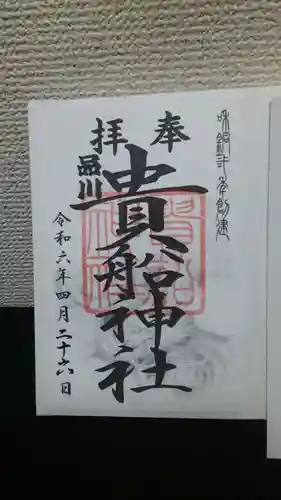 和銅二年創建
奉拝
品川
貴船神社
令和六年四月二十六日